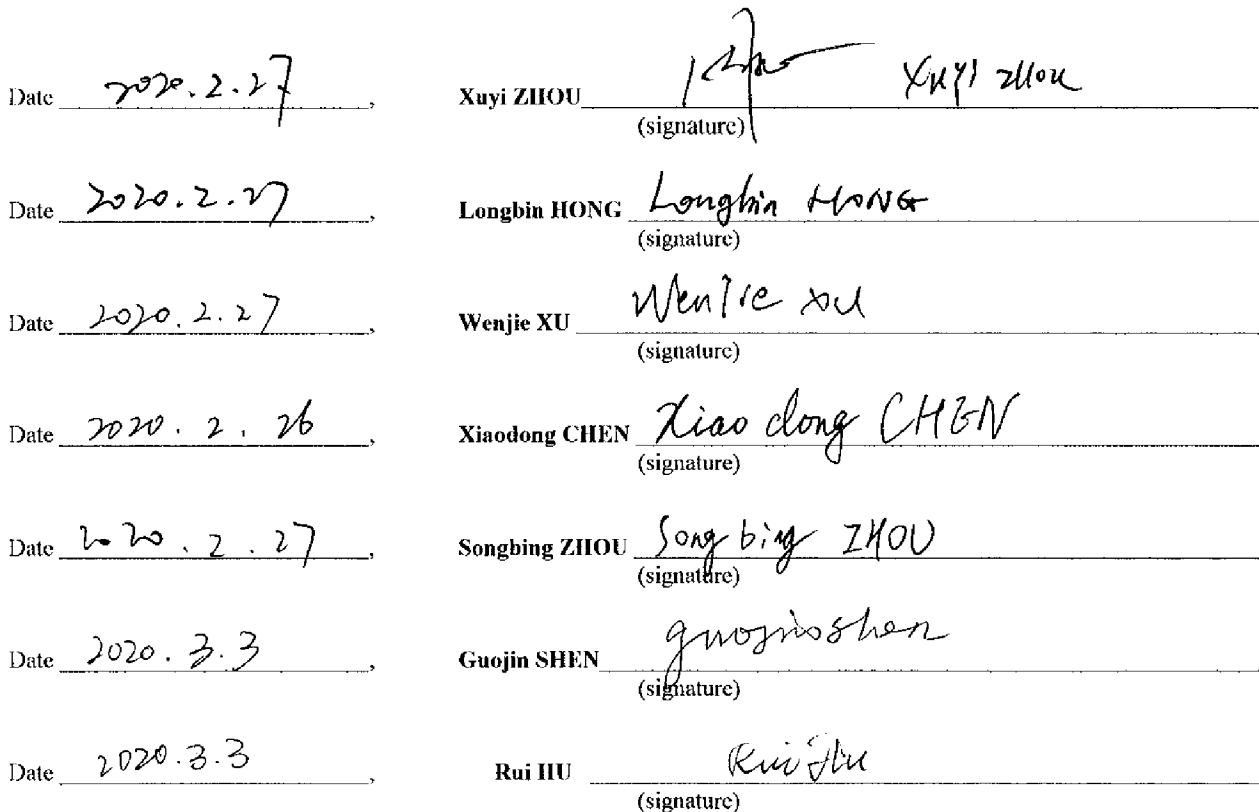 Date 2020.2.27, Xuyi ZHOU Xuyi zhou
(signature)
Date 2020.2.27, Longbin HONG Longbin HONG
(signature)
Date 2020.2.27, Wenjie XU Wenjie xu
(signature)
Date 2020.2.26, Xiaodong CHEN Xiao dong CHEN
(signature)
Date 2020.2.27, Songbing ZHOU Song bing ZHOU
(signature)
Date 2020.3.3, Guojin SHEN guojinshen
(signature)
Date 2020.3.3, Rui HU Rui Hu
(signature)